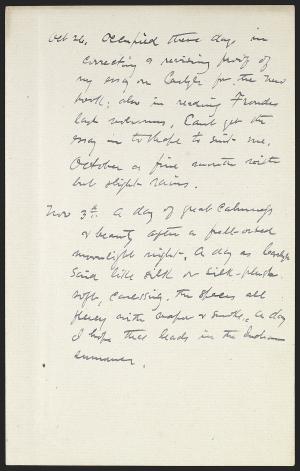 Oct 26. Occupied these days in
correcting & revising proof of
my essay on Carlyle for the new
book; also in reading Froudes
last volumes. Can't get the
essay in to shape to suit me.
October a fine month with
but slight rains.
Nov 3d. A day of great calmness
& beauty after a full-orbed
moonlight night. A day as Carlyle
said like silk or silk-plush
soft, caressing, the spaces all
fleecy with vapor & smoke. A day
I hope that leads in the Indian
summer.